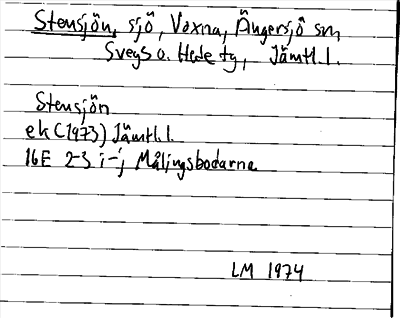 Stensjön, sjö, Voxna, Ängersjö sn,
Svegs o. Hede tg, Jämtl. l.
Stensjön
ek (1973) Jämtl. l.
16E 2-3 i-j Målingsbodarna
LM 1974